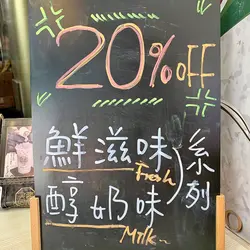 20%OFF
鮮滋味
Fresh
系列
醇奶味
Milk